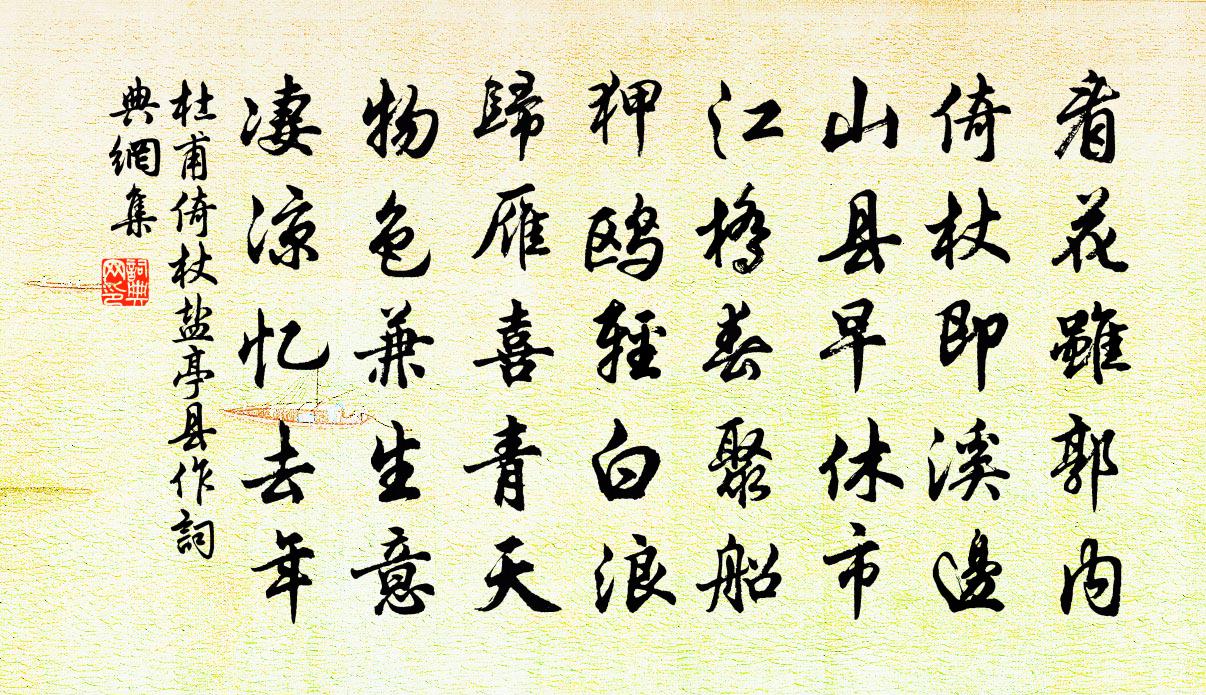 看花雖郭内
倚杖即溪邊
山县早休市
江橋春聚船
狎鷗輕白浪
歸雁喜青天
物色兼生意
凄涼忆去年
杜甫倚杖盐亭县作詞
典網集
詞典
网印